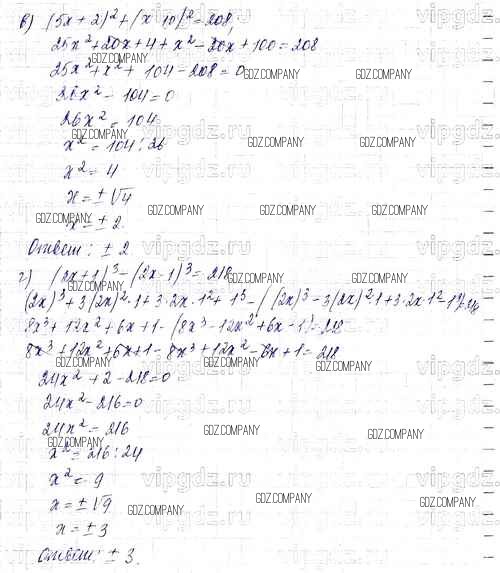 в) (5x + 2)² + (x - 10)² = 208,
25x² + 20x + 4 + x² - 20x + 100 = 208
25x² + x² + 104 - 208 = 0
26x² - 104 = 0
26x² = 104
x² = 104 : 26
x² = 4
x = ± √4
x = ± 2
Ответ: ± 2
г) (2x + 1)³ - (2x - 1)³ = 218
(2x)³ + 3(2x)²·1 + 3·2x·1² + 1³ - ((2x)³ - 3(2x)²·1 + 3·2x·1² - 1³) = 218
8x³ + 12x² + 6x + 1 - (8x³ - 12x² + 6x - 1) = 218
8x³ + 12x² + 6x + 1 - 8x³ + 12x² - 6x + 1 = 218
24x² + 2 - 218 = 0
24x² - 216 = 0
24x² = 216
x² = 216 : 24
x² = 9
x = ± √9
x = ± 3
Ответ: ± 3.